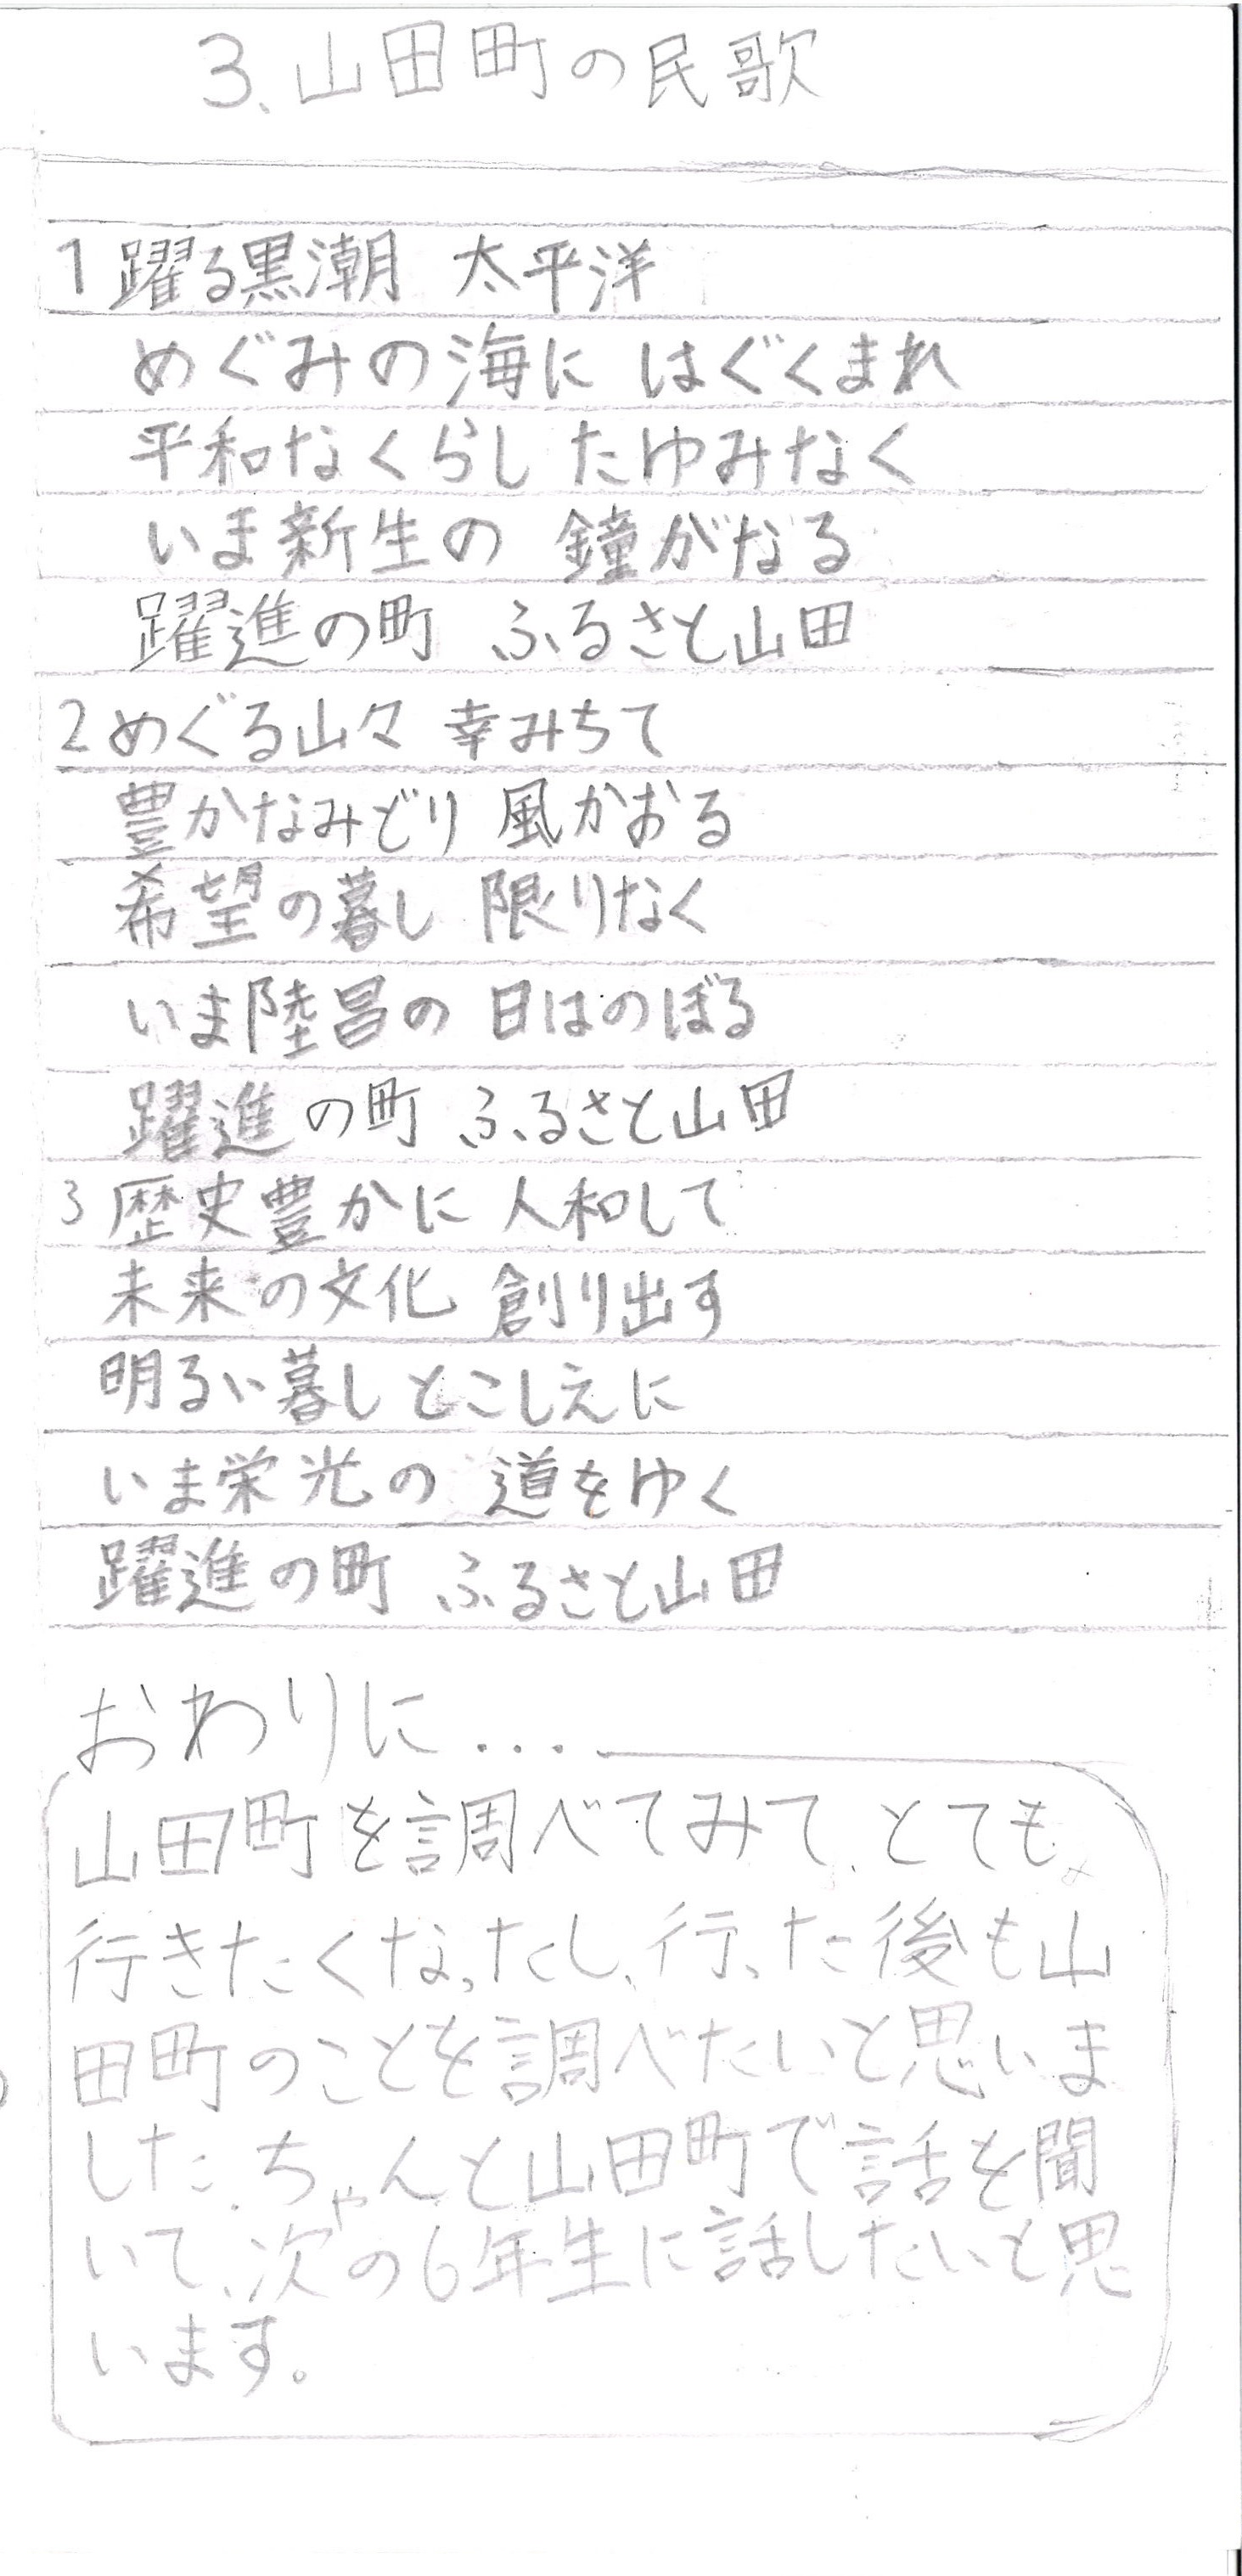 3、山田町の民歌
1 躍る黒潮 太平洋
めぐみの海に はぐくまれ
平和なくらし たゆみなく
いま新生の 鐘がなる
躍進の町 ふるさと山田
2 めぐる山々 幸みちて
豊かなみどり 風かおる
希望の暮し 限りなく
いま陸昌の 日はのぼる
躍進の町 ふるさと山田
3 歴史豊かに 人和して
未来の文化 創り出す
明るい暮し とこしえに
いま栄光の 道をゆく
躍進の町 ふるさと山田
おわりに...
山田町を調べてみて、とても、
行きたくなったし、行った後も山
田町のことを調べたいと思いま
した。ちゃんと山田町で話を聞
いて、次の6年生に話したいと思
います。